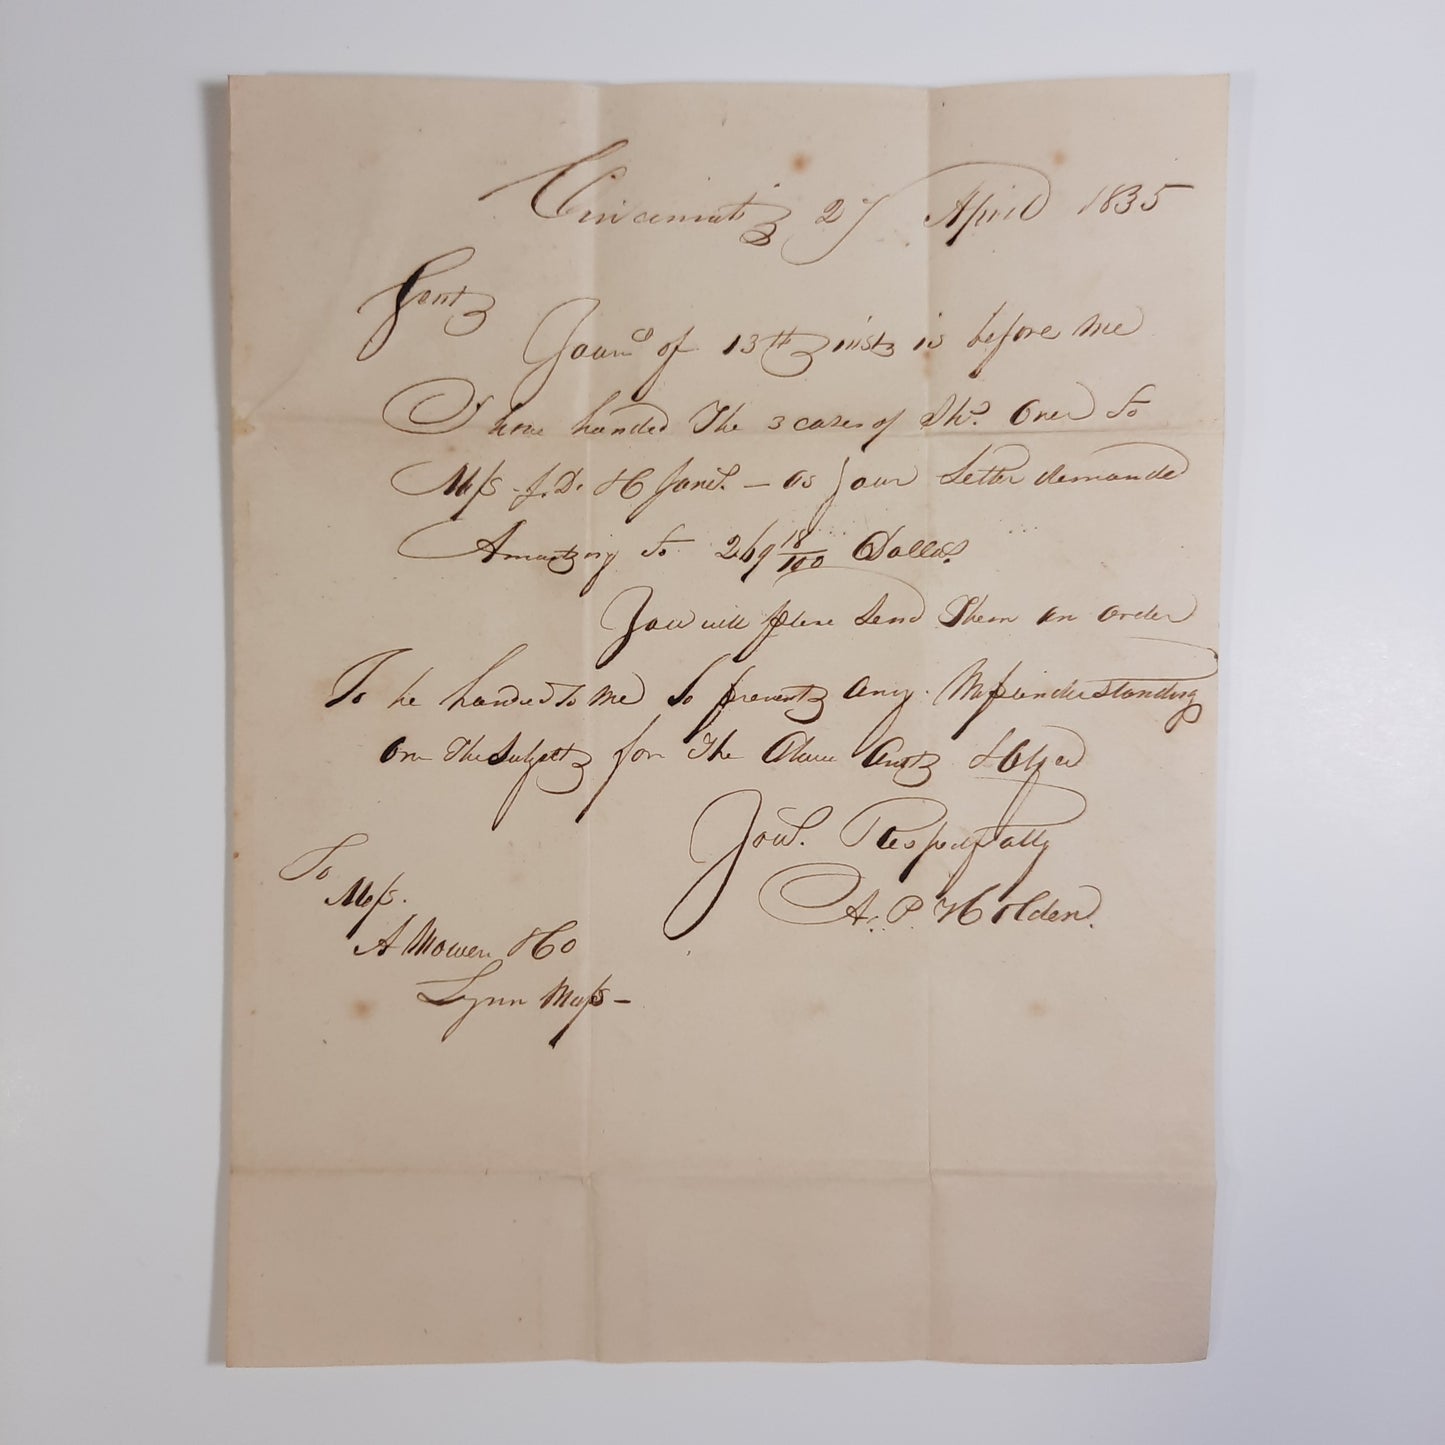 Cincinnati 27 April 1835
Gent
Your of 13th inst is before me
I have handed The 3 cases of Sh.s Over to
Mess J. D. & C Jones. – as your Letter demande
Amounting to 269 18/100 Dollas.
You will please Send Them an order
To be handed to me to prevent any Missunderstanding
on The Subject for The Above Amt
Yous. Respectfully
A. P. Holden.
To
Mess.
A Mower & Co
Lynn Mass –